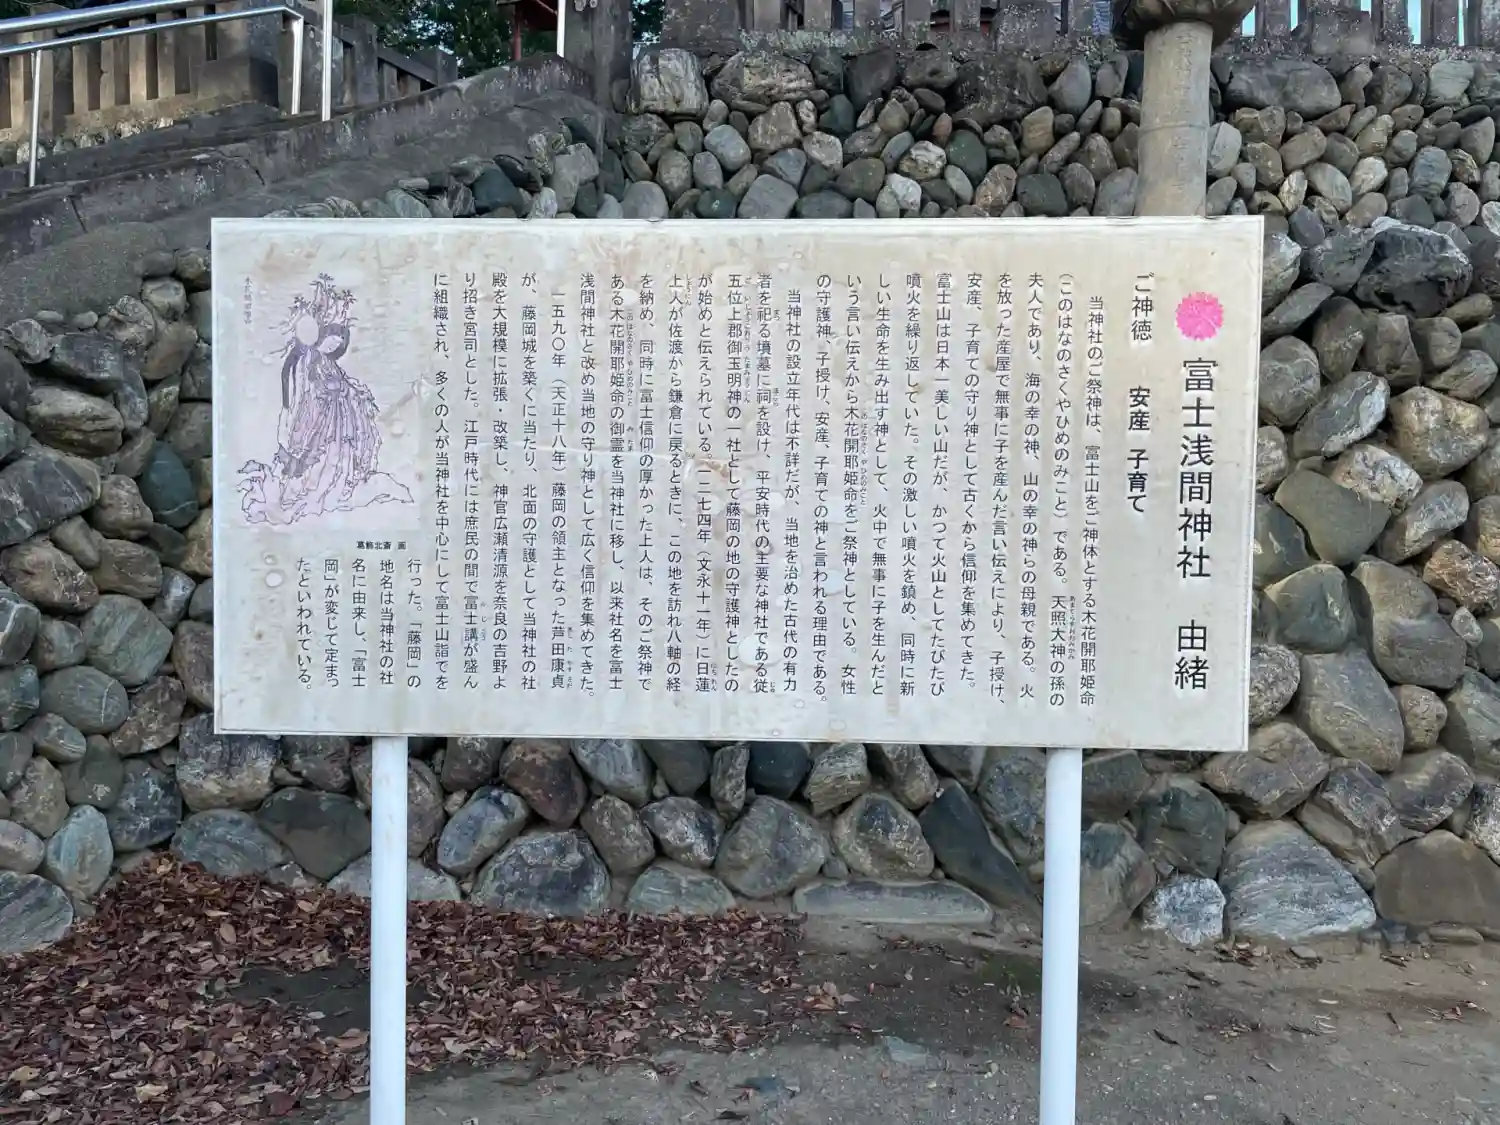 富士浅間神社　由緒
ご神徳　安産　子育て
当神社のご祭神は、富士山をご神体とする木花開耶姫命
（このはなのさくやひめのみこと）である。天照大神の孫の
夫人であり、海の幸の神、山の幸の神らの母親である。火
を放った産屋で無事に子を産んだ言い伝えにより、子授け、
安産、子育ての守り神として古くから信仰を集めてきた。
富士山は日本一美しい山だが、かつて火山としてたびたび
噴火を繰り返していた。その激しい噴火を鎮め、同時に新
しい生命を生み出す神として、火中で無事に子を生んだと
いう言い伝えから木花開耶姫命をご祭神としている。女性
の守護神、子授け、安産、子育ての神と言われる理由である。
当神社の設立年代は不詳だが、当地を治めた古代の有力
者を祀る墳墓に祠を設け、平安時代の主要な神社である従
五位上郡御玉明神の一社として藤岡の地の守護神としたの
が始めと伝えられている。（一二七四年（文永十一年）に日蓮
上人が佐渡から鎌倉に戻るときに、この地を訪れ八軸の経
を納め、同時に富士信仰の厚かった上人は、そのご祭神で
ある木花開耶姫命の御霊を当神社に移し、以来社名を富士
浅間神社と改め当地の守り神として広く信仰を集めてきた。
一五九〇年（天正十八年）藤岡の領主となった芦田康貞
が、藤岡城を築くに当たり、北面の守護として当神社の社
殿を大規模に拡張・改築し、神官広瀬清源を奈良の吉野よ
り招き宮司とした。江戸時代には庶民の間で富士講が盛ん
に組織され、多くの人が当神社を中心にして富士山詣でを
行った。「藤岡」の
地名は当神社の社
名に由来し、「富士
岡」が変じて定まっ
たといわれている。
葛飾北斎　画